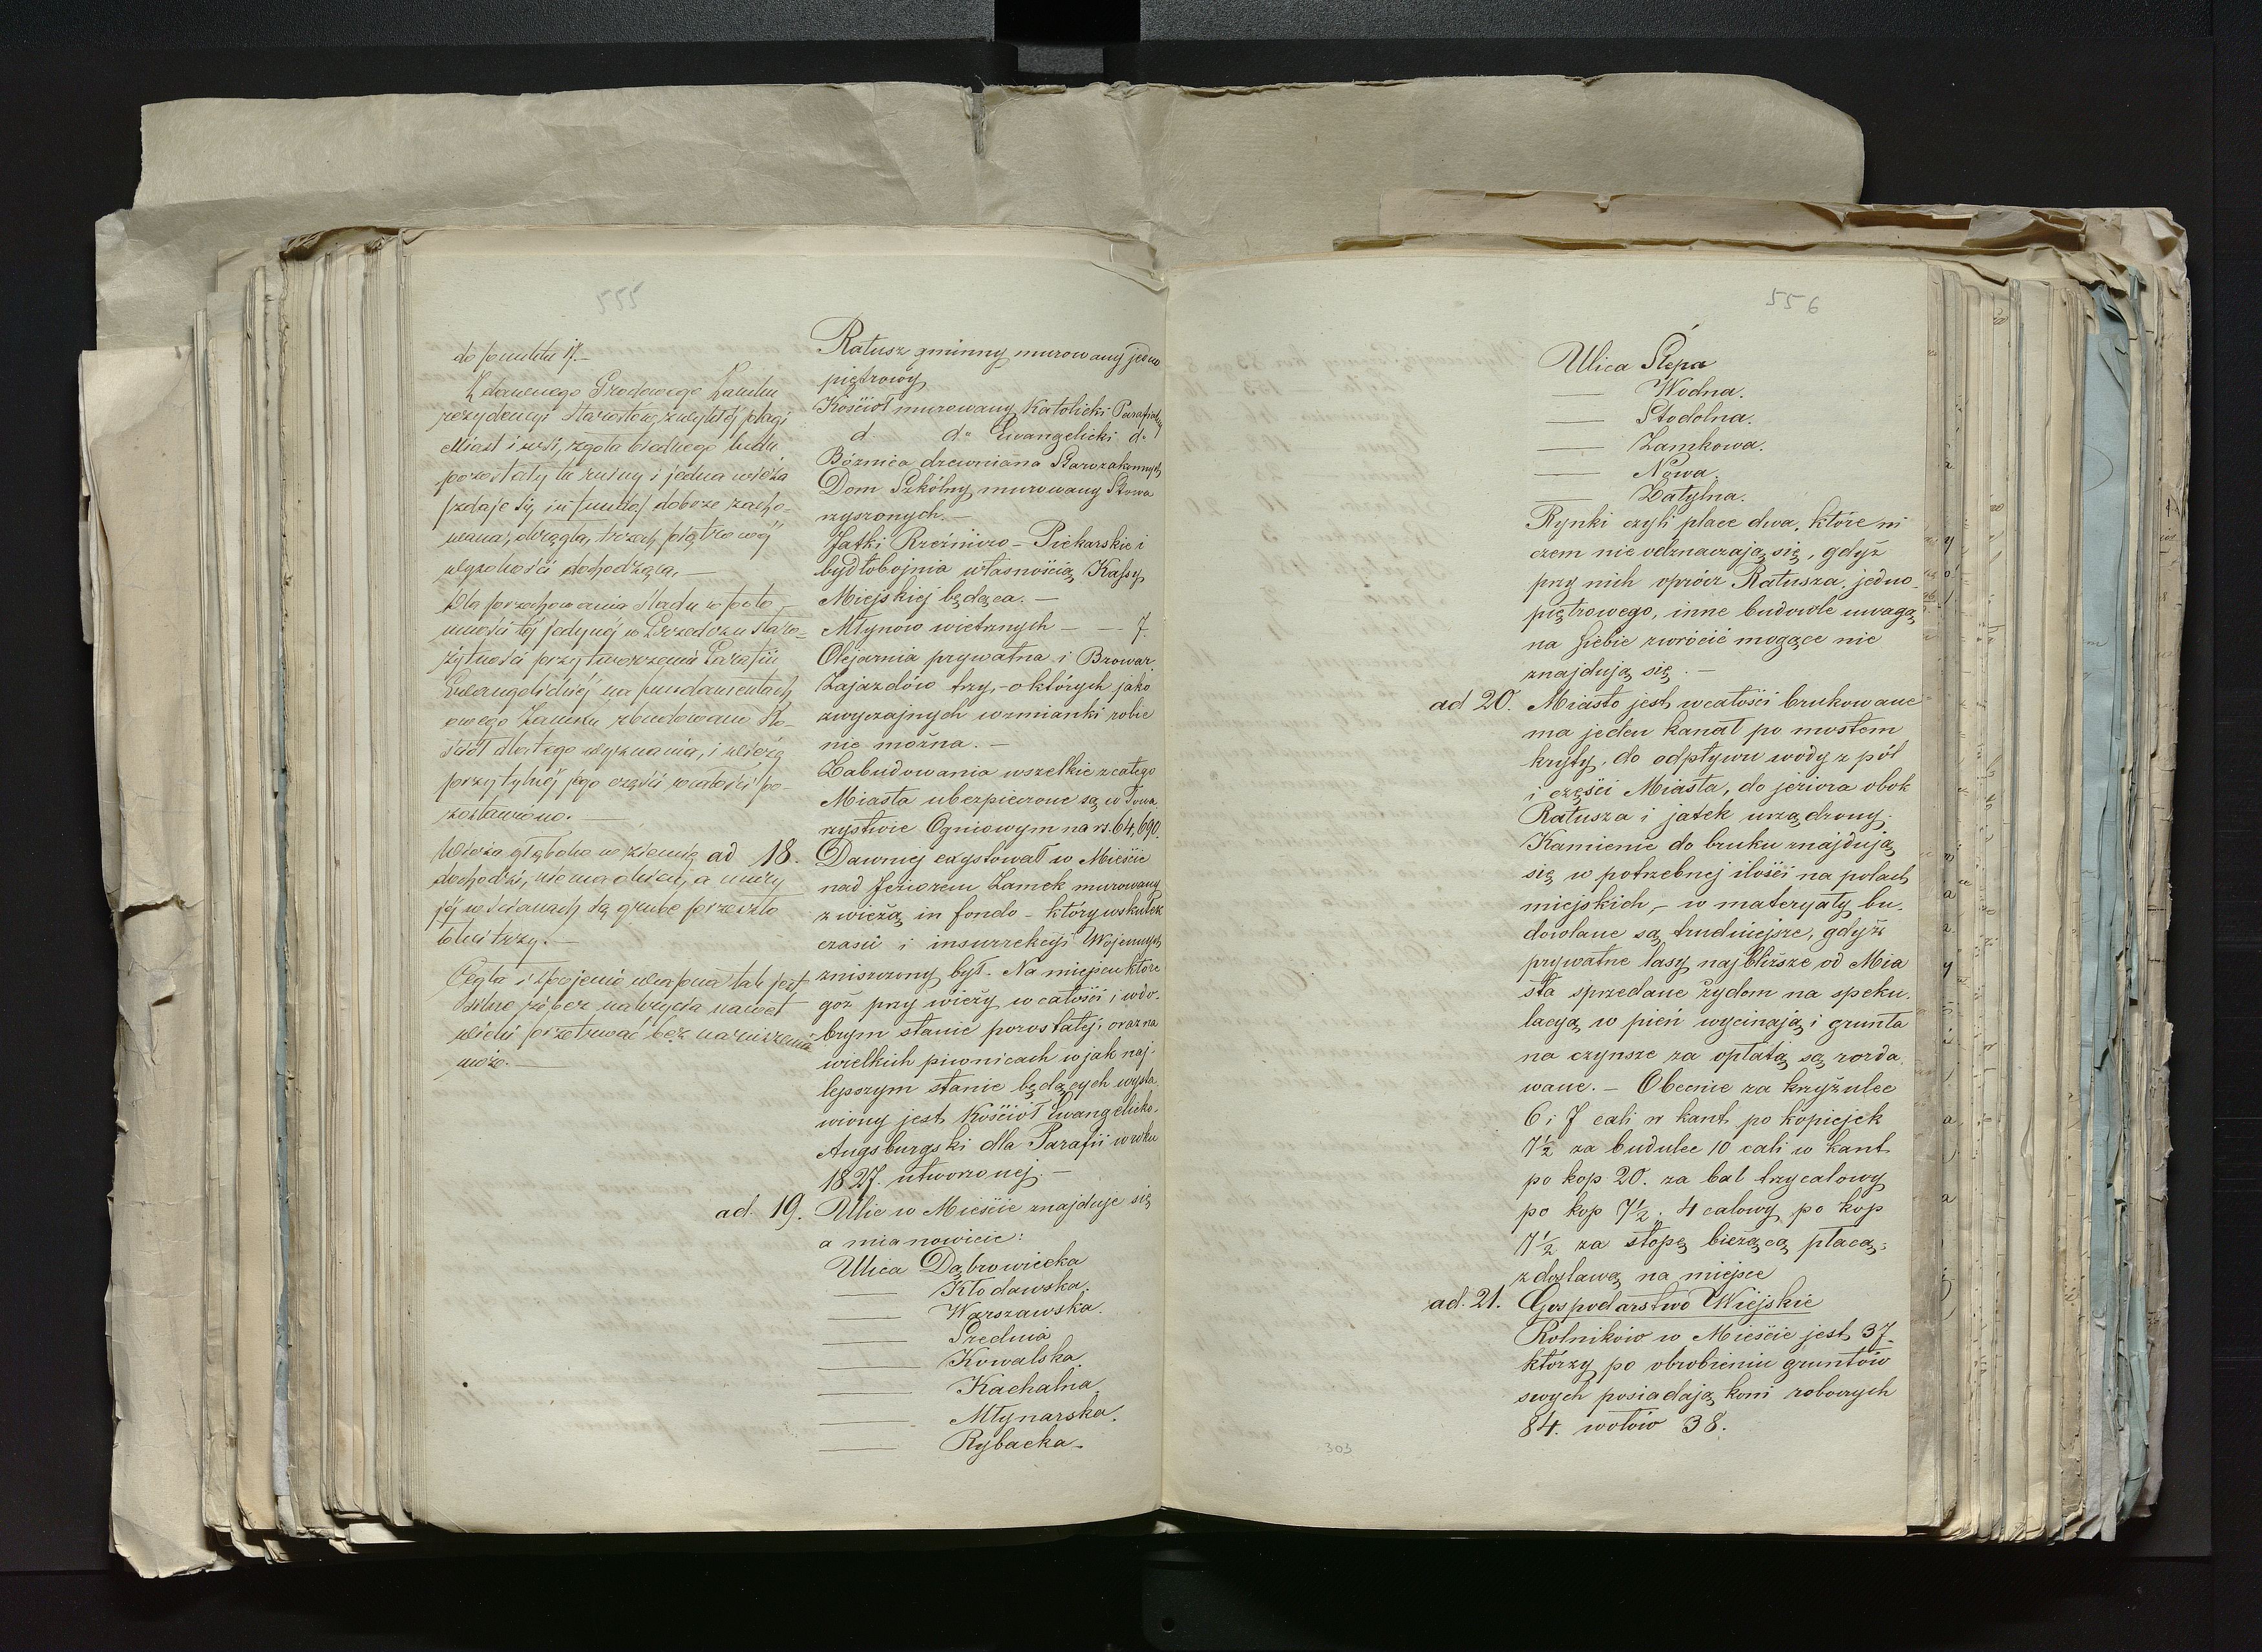 555
do punktu 17.—
Z dawnego Grodowego Zamku
rezydencyi Starostów, zaległéj
Miast i wsi, zgoła ludu
pozostały tu ruiny i jedna wieża
/zdaje się in fundo/ dobrze zacho-
wana, okrągła, trzech piętrowéj
wysokości dochodząca.—
Dla przechowania śladu w poto-
mności téj jedynéj w Przedeczu staro-
żytności przy tworzeniu Parafii
Ewangelickiéj na fundamentach
owego Zamku zbudowano Ko-
ściół dla tego wyznania, i wieżę
przy tylnéj jego części w całości po-
zostawiono.—
Wieża głęboko w ziemię
dochodzi, niema okien, a mury
jéj w ścianach są grube przeszło
łokci trzy.—
Cegła i spojenie wapna tak jest
silne że bez nakrycia nawet
wieki przetrwać bez naruszenia
może.—
Ratusz gminny murowany jedno
piętrowy
Kościoł murowany Katolicki Parafialny
d. d.o Ewangelicki d.o
Bóżnica drewniana Starozakonnych
Dom Szkólny murowany Stowa
rzyszonych.—
Jatki Rzeźniczo-Piekarskie i
bydłobojnia własnością Kassy
Miejskiej będąca.—
Młynow wietrznych — — 7.
Olejarnia prywatna i Browar.
Zajazdów trzy,- o których jako
zwyczajnych wzmianki robić
nie można.—
Zabudowania wszelkie z całego
Miasta ubezpieczone są w Towa
rzystwie Ogniowym na rs. 64,690.
ad 18. Dawniej exystował w Mieście
nad Jeziorem Zamek murowany
z wieżą in fondo - który wskutek
czasu i insurrekcyi Wojennych
zniszczony był. Na miejscu które
goż przy wieży w całości i w do-
brym stanie pozostałej, oraz na
wielkich piwnicach w jak naj-
lepszym stanie będących wysta
wiony jest Kościoł Ewangelicko-
Augsburgski dla Parafii w roku
1827. utworzonej.—
ad. 19. Ulic w Mieście znajduje się
a mianowicie:
Ulica Dąbrowicka
— Kłodawska.
— Warszawska.
— Srednia
— Kowalska.
— Kachalna.
— Młynarska.
— Rybacka.
556
Ulica Ślepa
— Wodna.
— Stodolna.
— Zamkowa.
— Nowa.
— Zatylna.
Rynki czyli place dwa, które ni
czem nie odznaczają się, gdyż
przy nich oprócz Ratusza jedno-
piętrowego, inne budowle uwagę
na siebie zwrócić mogące nie
znajdują się.—
ad 20. Miasto jest w całości brukowane
ma jeden kanał po mostem
kryty, do odpływu wody z pól
i części Miasta, do jeziora obok
Ratusza i jatek urządzony.
Kamienie do bruku znajdują
się w potrzebnej ilości na polach
miejskich, - w materyały bu-
dowlane są trudniejsze, gdyż
prywatne lasy najbliższe od Mia
sta sprzedane żydom na speku-
lacyą w pień wycinają i grunta
na czynsze za opłatą są rozda
wane.— Obecnie za krzyżulec
6 i 7 cali w kant po kopiejek
7½ za budulec 10 cali w kant
po kop 20. za bal trzycalowy
po kop 7½. 4 calowy po kop
7½ za stopę bieżącą płacą,
z dostawą na miejsce
ad. 21. Gospodarstwo Wiejskie
Rolników w Mieście jest 37.
którzy po obrobieniu gruntów
swych posiadają koni roboczych
84. wołów 38.
303